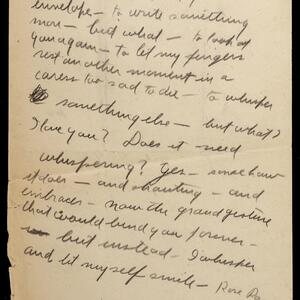 envelope – to write something
more – but what – to look at
you again – to let my fingers
rest another moment in a
caress too sad to die – to whisper
something else – but what?
I love you? Does it need
whispering? Yes – somehow
it does – and shouting – and
embraces – now the grand gesture
that would bind you forever –
but instead – I whisper
and let myself smile – Rose